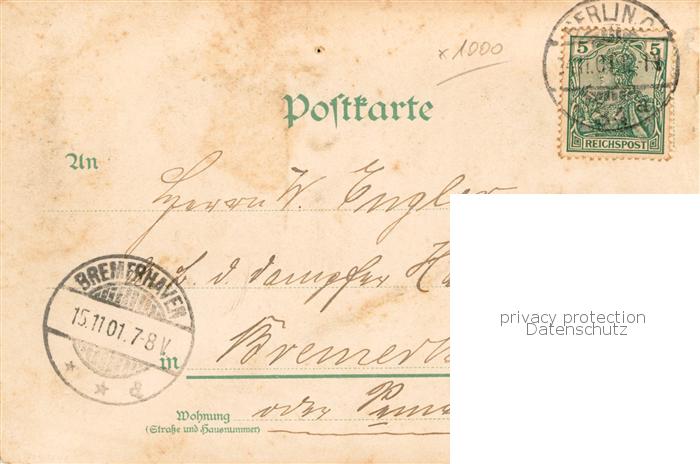 x 1000
BERLIN C.
5 5
REICHSPOST
Postkarte
An
Herrn W. Engler
d. Dampfer Ha
BREMERHAVEN
15.11.01.7-8V.
* * a
in
Bremerh
Wohnung
(Straße und Hausnummer)
oder
privacy protection
Datenschutz